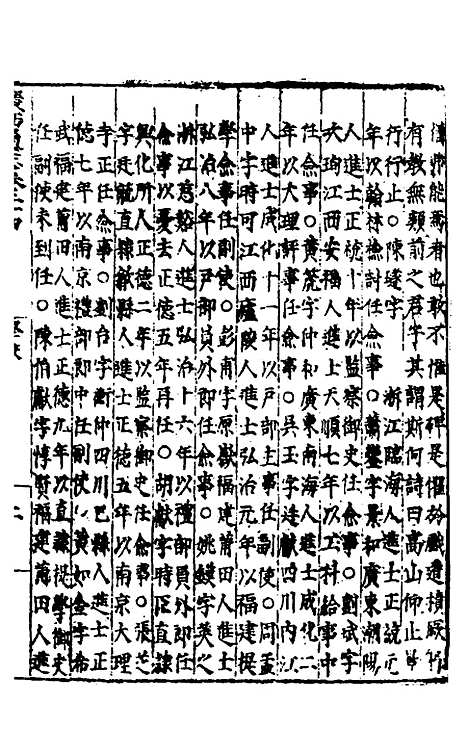 僕弗能為者也敢不惟是碑是懼於戲遺積厥
有數無頼前之君乎其謂斯何詩曰高山仰止
行行止○陳縫字 浙江臨海人進士正統元
年以翰林檢討任僉事○蕭鑾字景和廣東潮陽
人進士正統十年以監察御史任僉事○劉斌字
大珣江西安福人進士天順七年以工科給事中
任僉事○黄箎字仲和廣東南海人進士成化二
年以大理評事任僉事○吳玉字廷獻四川内江
人進士成化十一年以户部主事任副使○周孟
中字時可江西廬陵人進士弘治元年以福建提
學僉事任副使○彭甫字原嶽福建莆田人進士
弘治八年以戸部員外郎任僉事○姚鏌字英之
浙江慈谿人進士弘治十六年以禮部員外郎任
僉事以憂去正德五年再任○胡獻字時臣直隸
興化所人正德二年以監察御史任僉事○張芝
字廷毓直隸歙縣人進士正德五年以南京大理
寺正任僉事○劉台字衡仲四川巴縣人進士正
德七年以南京禮部郎中任副使○黄如金字希
武福建莆田人進士正德九年以直隸提學御史
任副使未到任○陳伯獻字惇賢福建莆田人進